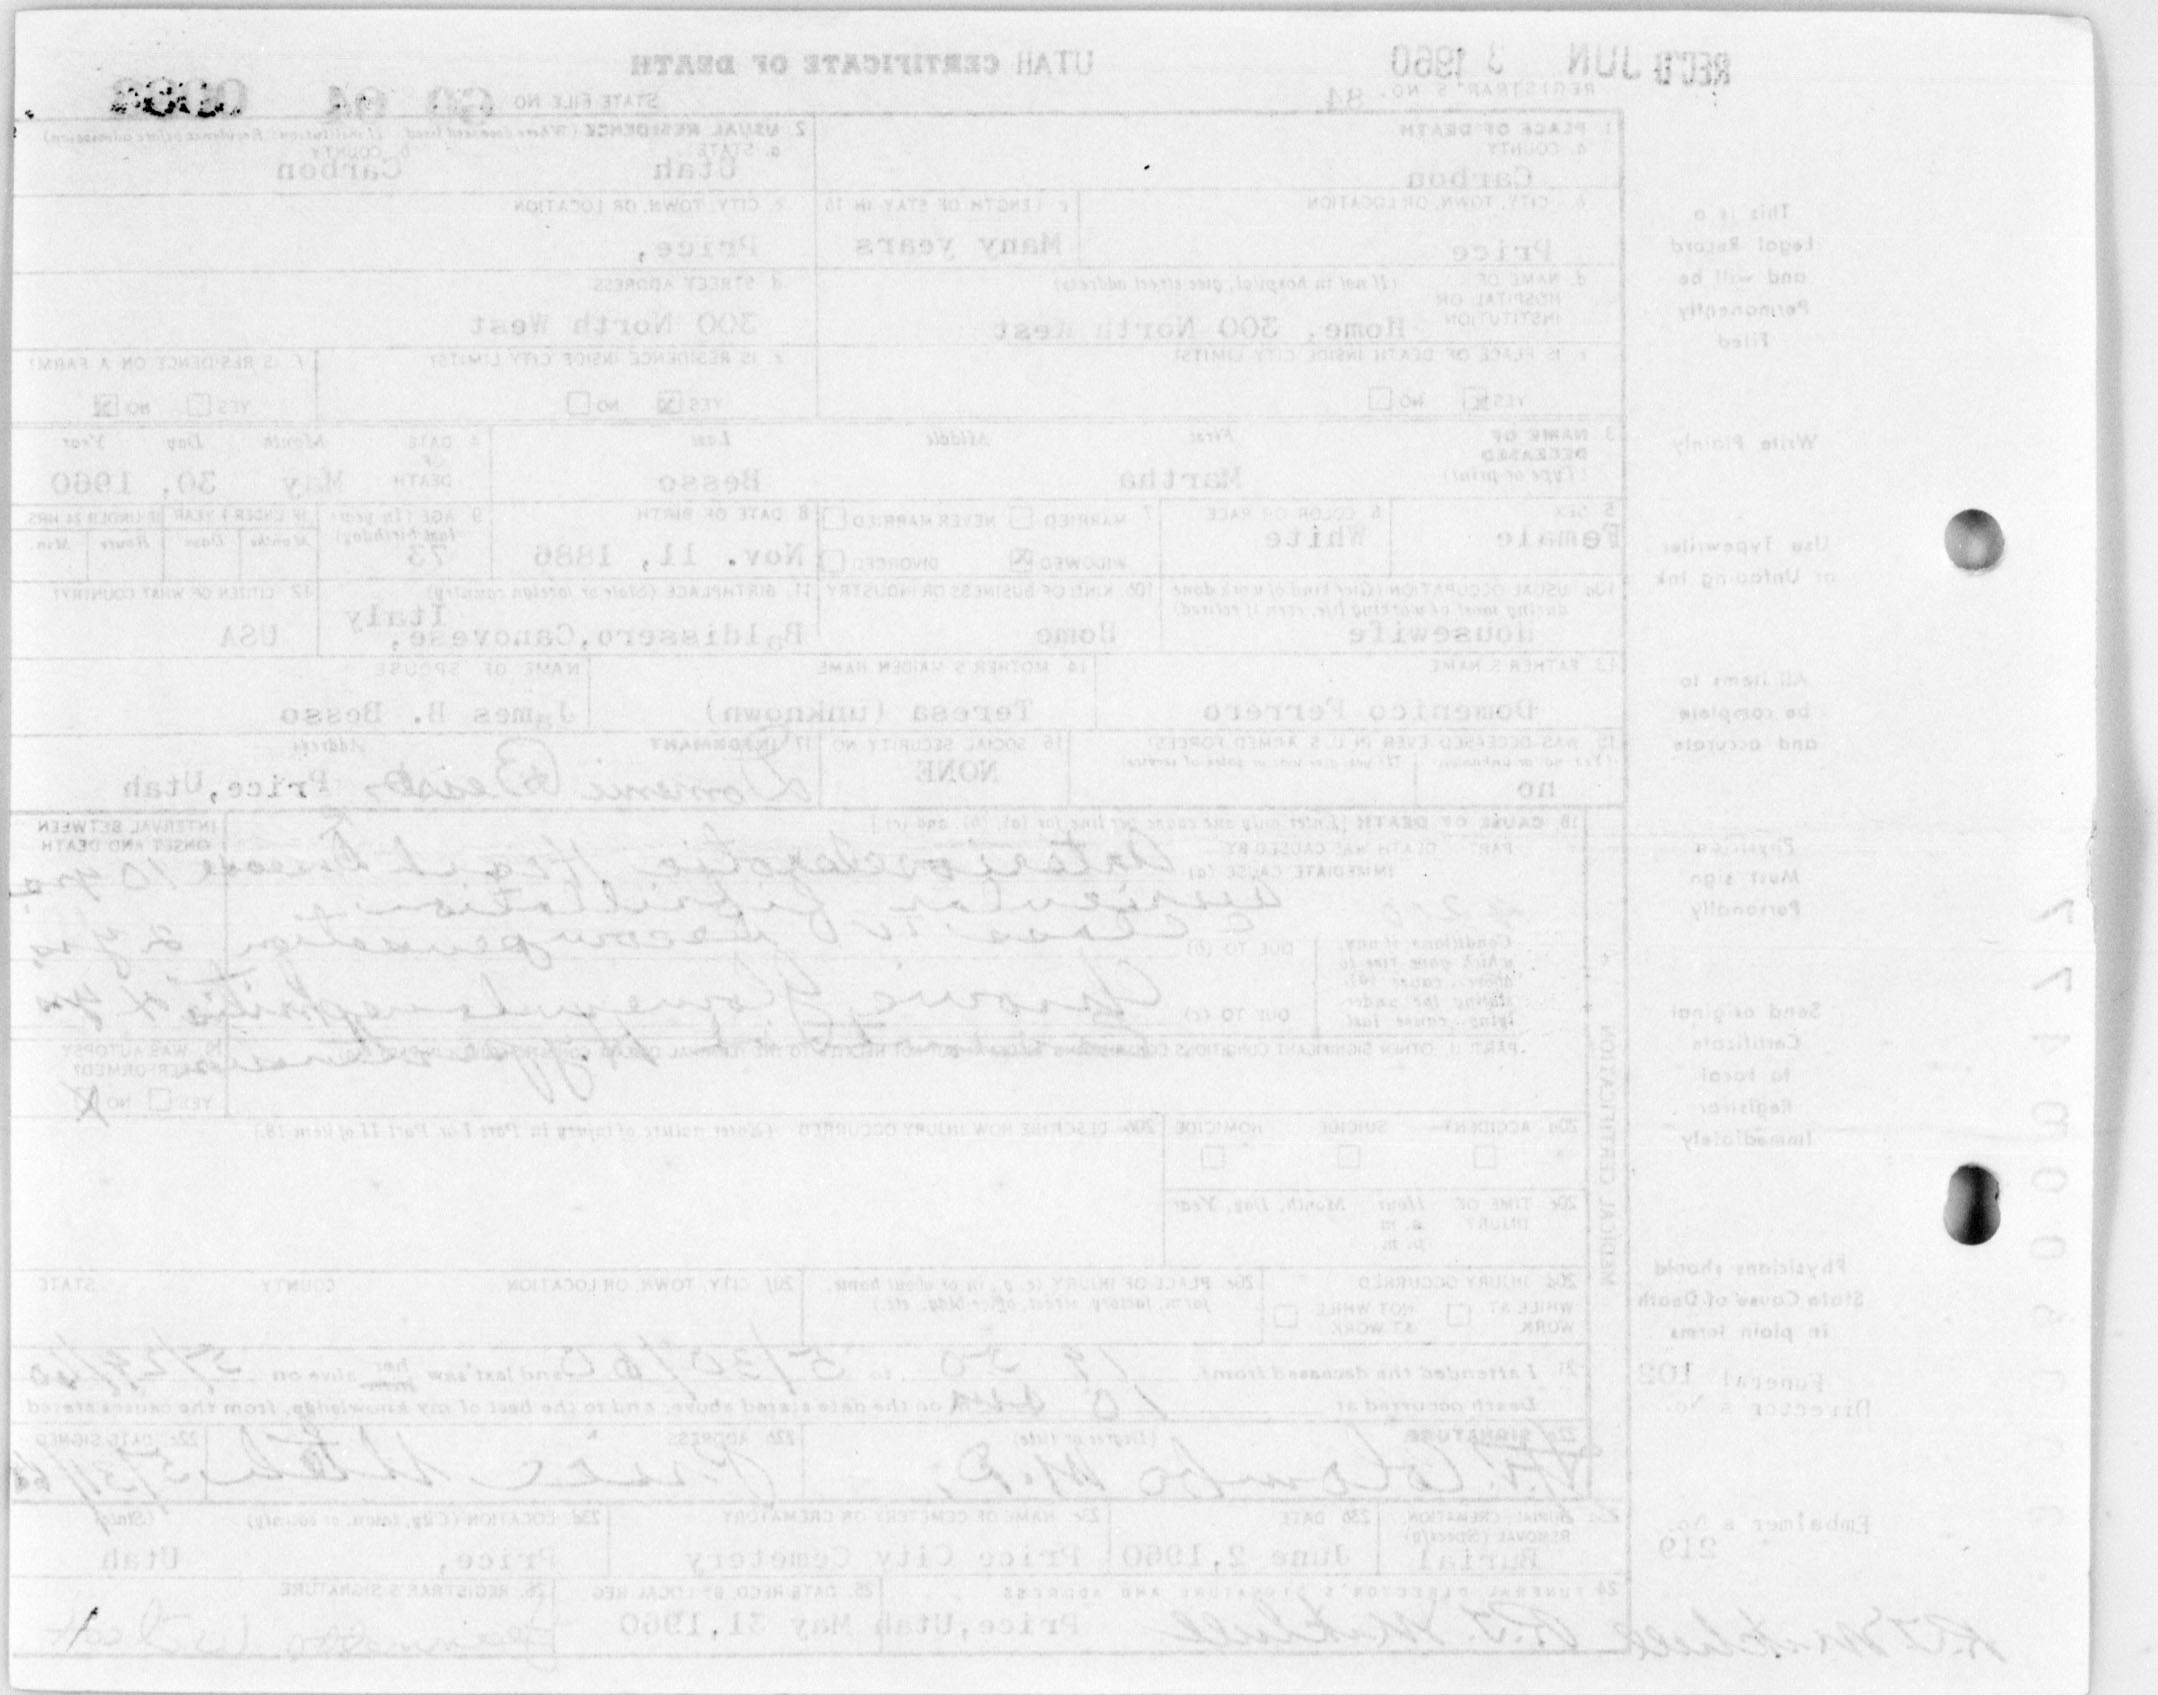 REC'D JUN 3 1960
UTAH CERTIFICATE OF DEATH
REGISTRAR'S NO. 84
STATE FILE NO 60 04
1 PLACE OF DEATH
a. COUNTY
Carbon
2. USUAL RESIDENCE (Where deceased lived. If institution: Residence before admission)
a. STATE
Utah
b. COUNTY
Carbon
b. CITY, TOWN, OR LOCATION
Price
c LENGTH OF STAY IN 1b
Many years
c CITY, TOWN, OR LOCATION
Price,
d. NAME OF HOSPITAL OR INSTITUTION (If not in hospital, give street address)
Home, 300 North West
d STREET ADDRESS
300 North West
e IS PLACE OF DEATH INSIDE CITY LIMITS?
YES NO
e. IS RESIDENCE INSIDE CITY LIMITS?
YES NO
f. IS RESIDENCE ON A FARM?
YES NO
3 NAME OF DECEASED (Type or print)
First Middle Last
Martha Besso
4 DATE OF DEATH
Month Day Year
May 30, 1960
5 SEX
Female
6 COLOR OR RACE
White
7 MARRIED NEVER MARRIED
WIDOWED DIVORCED
8 DATE OF BIRTH
Nov. 11, 1886
9 AGE (In years last birthday)
73
IF UNDER 1 YEAR
Months Days
IF UNDER 24 HRS
Hours Min.
10a USUAL OCCUPATION (Give kind of work done during most of working life, even if retired)
Housewife
10b. KIND OF BUSINESS OR INDUSTRY
Home
11. BIRTHPLACE (State or foreign country)
Baldissero,Canovese, Italy
12 CITIZEN OF WHAT COUNTRY?
USA
13. FATHER'S NAME
Domenico Ferrero
14 MOTHER'S MAIDEN NAME
Teresa (unknown)
NAME OF SPOUSE
James B. Besso
15 WAS DECEASED EVER IN U.S. ARMED FORCES?
(Yes no or unknown) (If yes, give war or dates of service)
no
16 SOCIAL SECURITY NO
NONE
17 INFORMANT Address
Price,Utah
18. CAUSE OF DEATH [Enter only one cause per line for (a), (b), and (c)]
PART I DEATH WAS CAUSED BY
IMMEDIATE CAUSE (a)
Arteriosclerotic Heart Disease 10 yrs
auricular fibrillation
Class IV decompensation 2 yrs
Conditions if any, which gave rise to above cause (a), stating the underlying cause last
DUE TO (b)
DUE TO (c)
Chronic Glomerulonephritis
Hypertension
INTERVAL BETWEEN ONSET AND DEATH
PART II. OTHER SIGNIFICANT CONDITIONS CONTRIBUTING TO DEATH BUT NOT RELATED TO THE TERMINAL DISEASE
19 WAS AUTOPSY PERFORMED?
YES NO
MEDICAL CERTIFICATION
20a ACCIDENT SUICIDE HOMICIDE
20b DESCRIBE HOW INJURY OCCURRED (Enter nature of injury in Part I or Part II of item 18.)
20c TIME OF INJURY Hour Month, Day, Year
a. m.
p. m.
20d INJURY OCCURRED
WHILE AT WORK NOT WHILE AT WORK
20e PLACE OF INJURY (e.g., in or about home, farm, factory, street, office bldg., etc.)
20f CITY, TOWN, OR LOCATION COUNTY STATE
21. I attended the deceased from 19 50 to 5/30/60 and last saw her him alive on 5/29/60
Death occurred at 10 on the date stated above, and to the best of my knowledge, from the causes stated
22a SIGNATURE (Degree or title)
Colombo M.D.
22b ADDRESS
Price Utah
22c DATE SIGNED
5/31/60
23a BURIAL, CREMATION, REMOVAL (Specify)
Burial
23b DATE
June 2,1960
23c. NAME OF CEMETERY OR CREMATORY
Price City Cemetery
23d LOCATION (City, town, or county) (State)
Price, Utah
24 FUNERAL DIRECTOR'S SIGNATURE AND ADDRESS
R.J. Mitchell Price,Utah
25. DATE RECD. BY LOCAL REG
May 31,1960
26. REGISTRAR'S SIGNATURE
This is a
Legal Record
and will be
Permanently
Filed
Write Plainly
Use Typewriter
or Unfading Ink
All items to
be complete
and accurate
Physician
Must sign
Personally
Send original
Certificate
to local
Registrar
Immediately
Physicians should
State Cause of Death
in plain terms
Funeral 102
Director's No.
Embalmer's No.
219
R.J. Mitchell